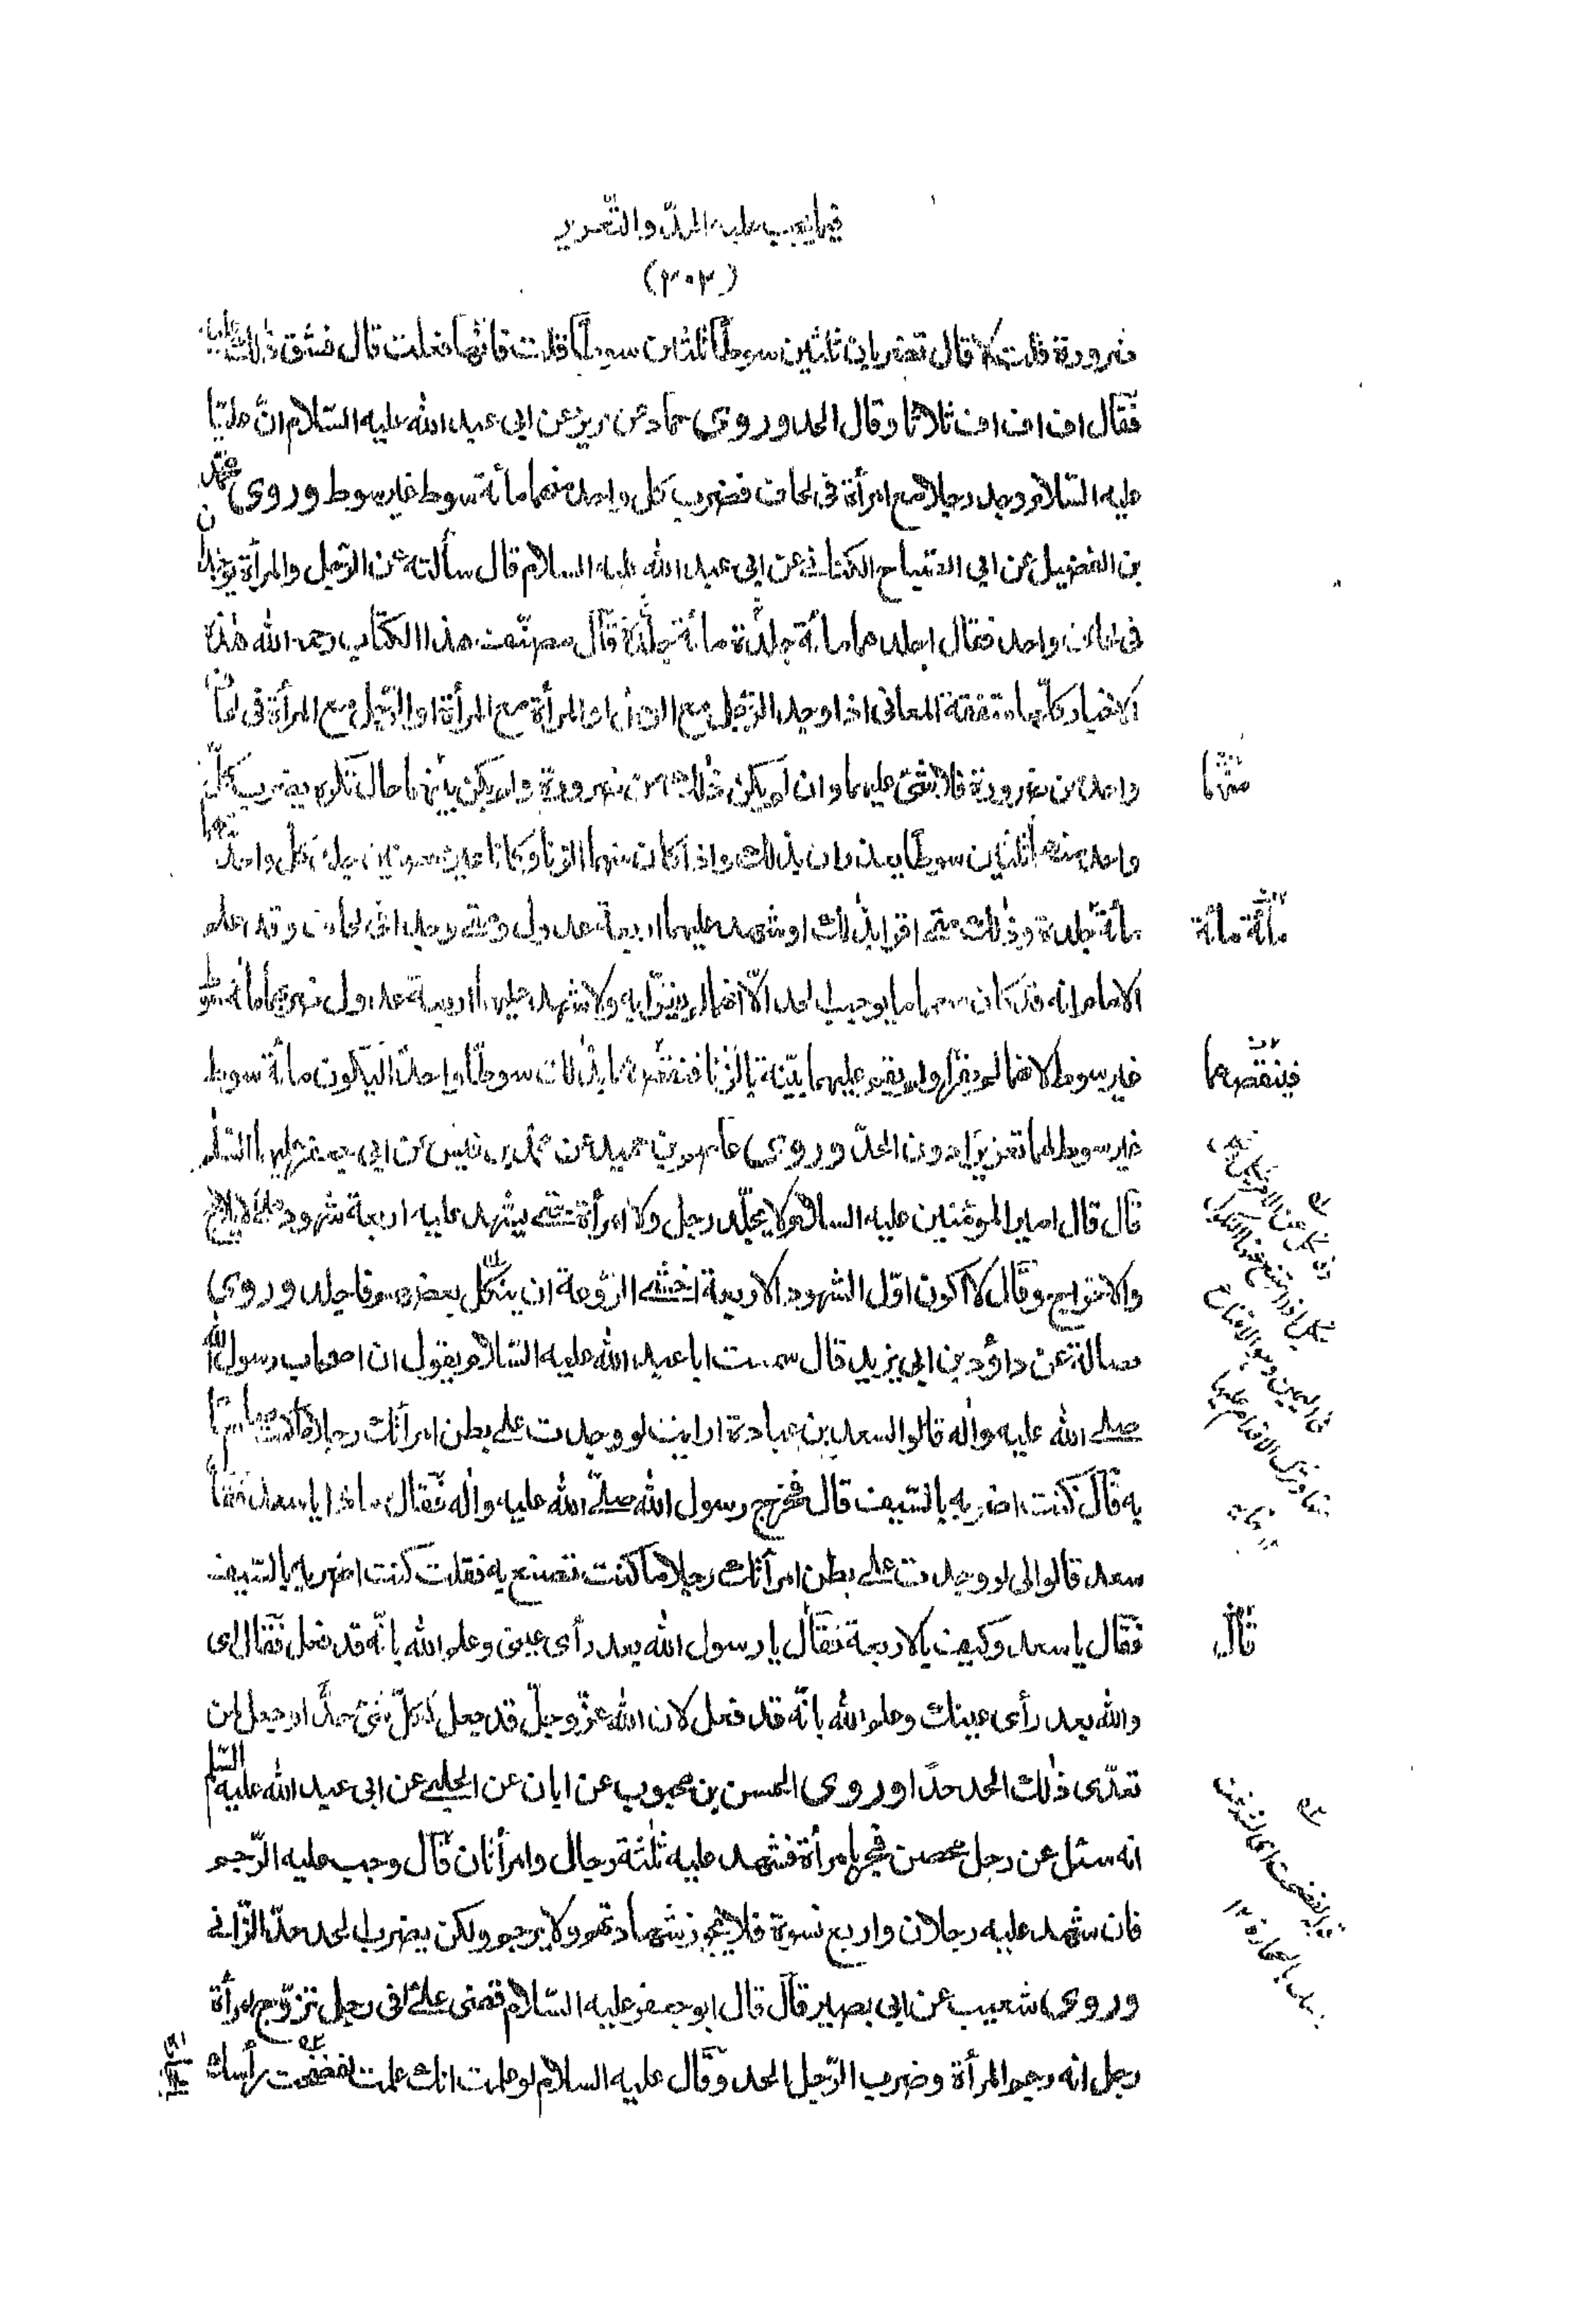 فيما يجب عليه الحدّ والتّعزير
(٣٠٣)
ضرورة قلت لا قال تضربان ثلثين سوطًا ثلثين سوطًا قلت فانّها فعلت قال فشق ذلك عليه
فقال اف اف اف ثلاثا وقال الحد وروى حماد عن حريز عن ابى عبد الله عليه السّلام انّ عليّا
عليه السّلام وجد رجلا مع امرأة فى لحاف فضرب كل واحد منهما مائة سوط غير سوط وروى محمّد
بن الفضيل عن ابى الصّباح الكنانى عن ابى عبد الله عليه السلام قال سألته عن الرّجل والمرأة يوجدان
فى لحاف واحد فقال اجلدهما مائة جلدة مائة جلدة قال مصنّف هذا الكتاب رحمه الله هذه
الاخبار كلّها متفقة المعانى اذا وجد الرّجل مع الرجل او المرأة مع المرأة او الرّجل مع المرأة فى لحاف
واحد من ضرورة فلا شئ عليهما وان لم يكن ذلك من ضرورة ولم يكن بينهما حال تكره يضرب كلّ
واحد منهما ثلثين سوطًا يعزران بذلك واذا كان منهما الزنا وكانا غير محصنين جلد كل واحد منهما
مائة جلدة وذلك متى اقرا بذلك او شهد عليهما اربعة عدول ومتى وجدا فى لحاف وقد علم
الامام انه قد كان منهما ما يوجب الحد الّا انهما لم يقرّا به ولا شهد عليهما اربعة عدول ضربهما مائة سوط
غير سوط لانهما لم يقرّا ولم يقم عليهما بيّنة بالزّنا فنقصهما بذلك سوطًا واحدًا ليكون مائة سوط
غير سوط لهما تعزيرًا دون الحدّ وروى عاصم بن حميد عن محمد بن قيس عن ابى جعفر عليهما السّلم
قال قال امير المؤمنين عليه السلام لا يجلّد رجل ولا امرأة حتى يشهد عليه اربعة شهود على الايلاج
والاخراج وقال لا اكون اوّل الشهود الاربعة اخشى الرّوعة ان ينكّل بعضهم فاجلد وروى
فضالة عن داؤد بن ابى يزيد قال سمعت ابا عبد الله عليه السّلام يقول ان اصحاب رسول الله
صلى الله عليه واٰله قالوا لسعد بن عبادة ارايت لو وجدت على بطن امرأتك رجلا ما كنت صانعا
به قال كنت اضربه بالسّيف قال فخرج رسول الله صلّى الله عليه واٰله فقال ماذا يا سعد فقال
سعد قالوا لى لو وجدت على بطن امرأتك رجلا ما كنت تصنع به فقلت كنت اضربه بالسّيف
فقال يا سعد وكيف بالاربعة فقال يا رسول الله بعد رأى عينى وعلم الله بانّه قد فعل فقال اى
والله بعد رأى عينك وعلم الله بانّه قد فعل لان الله عزّ وجلّ قد جعل لكلّ شئ حدًّا وجعل لمن
تعدّى ذلك الحد حدًا وروى الحسن بن محبوب عن ابان عن الحلبى عن ابى عبد الله عليه السّلم
انه سئل عن رجل محصن فجر بامرأة فشهد عليه ثلثة رجال وامرأتان قال وجب عليه الرّجم
فان شهد عليه رجلان واربع نسوة فلا تجوز شهادتهم ولا يرجم ولكن يضرب الحد حدّ الزّانى
وروى شعيب عن ابى بصير قال قال ابو جعفر عليه السّلام قضى علىّ فى رجل تزوّج امرأة
رجل انه رجم المرأة وضرب الرّجل الحد وقال عليه السلام لو علمت انك علمت لفضخت رأسك
منهما
مائة مائة
فينقصهما
قال